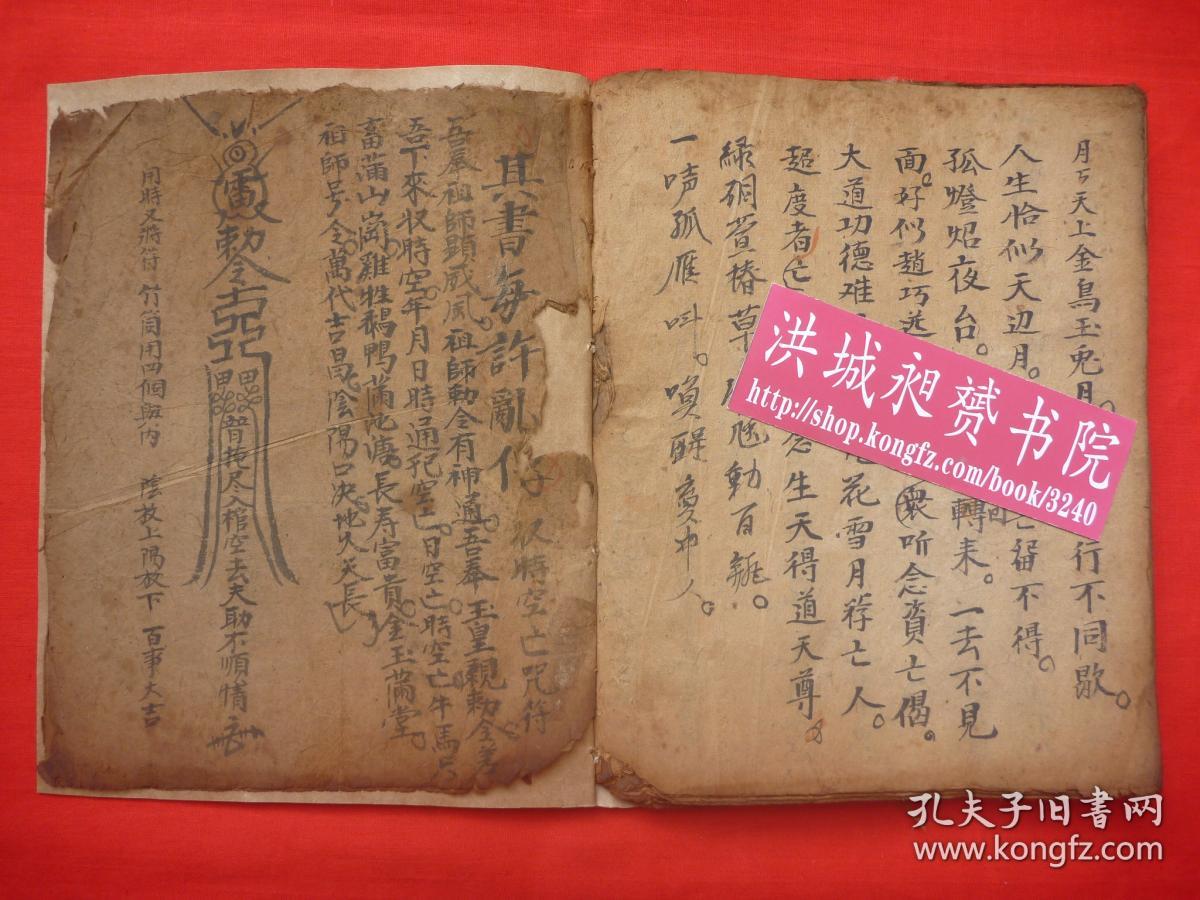 月々天上金烏玉兎月。行不同歇。
人生恰似天边月。留不得。
孤燈炤夜台。轉来。一去不見
面。好似趙巧送 衆听念賫亡偈。
大道功德难 花雪月荐亡人。
超度者亡 念生天得道天尊。
緑硐萱椿草 動百雞。
一声孤雁叫。喚醒夢中人。
其書毋許亂傳 收時空亡咒符
吾奉祖師顕威風。祖師勅令有神通。吾奉玉皇親勅令差
吾下來収時空。年月日時通犯空亡。日空亡時空亡牛馬只
畜蒲山崗雞牲鵝鴨蒲池溏。長寿富貴金玉蒲堂。
祖師号令萬代吉昌。陰陽口决地久天長
勅令
押尽入棺空去夫助不順情
用時又將符 竹筒用四個與内 陰放上陽放下 百事大吉
洪城昶赟书院
http://shop.kongfz.com/book/3240
孔夫子旧书网
www.kongfz.com